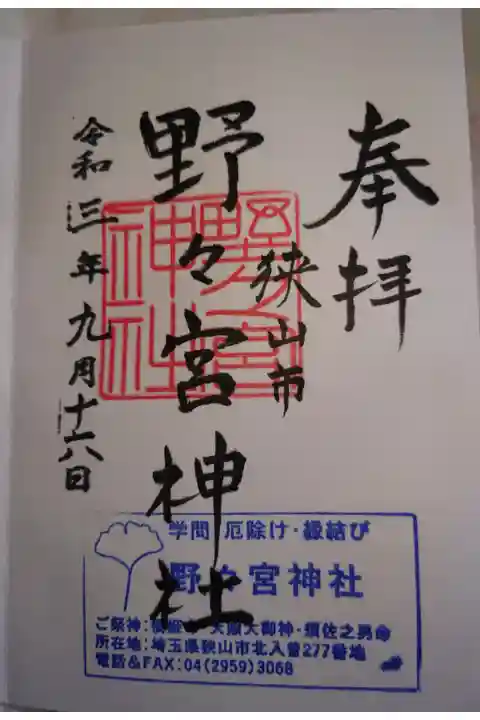 奉拝
狭山市
野々宮神社
令和三年九月十六日
野々宮神社
学問 厄除け・縁結び
野々宮神社
ご祭神: 天照大御神・須佐之男命
所在地:埼玉県狭山市北入曽277番地
電話&FAX:04(2959)3068